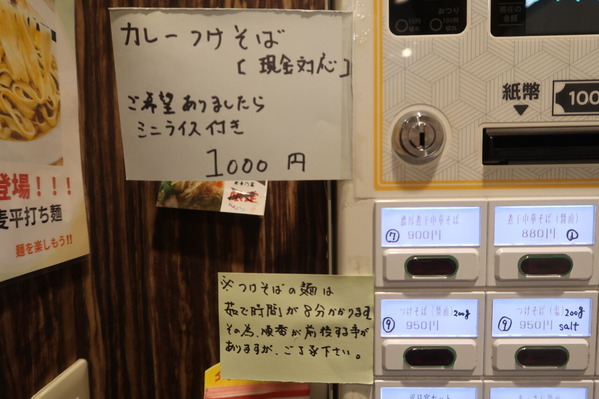 カレーつけそば
[現金対応]
ご希望ありましたら
ミニライス付き
1000円
登場!!!
麦平打ち麺
麺を楽しもう!!
限定
※つけそばの麺は
茹で時間が8分かかります
その為、順番が前後する事が
ありますが、ご了承下さい。
おつり
紙幣
1000
濃厚煮干中華そば
⑦ 900円
煮干中華そば(醤油)
880円
つけそば(醤油) 200g
⑨ 950円
つけそば(塩) 200g
⑨ 950円 salt